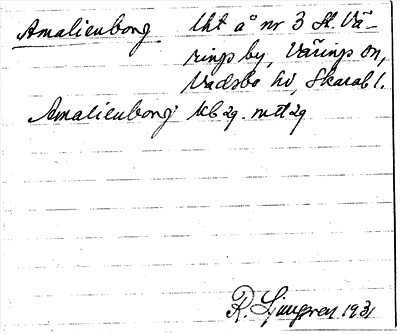 Amalienborg lht å nr 3 St. Vä-
rings by, Värings sn,
Vadsbo hd, Skarab l.
Amalienborg Kb 29. mtl 29
R. Ljunggren 1931